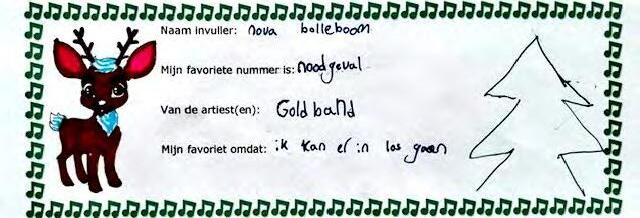 Naam invuller: nova bolleboom
Mijn favoriete nummer is: noodgeval
Van de artiest(en): Goldband
Mijn favoriet omdat: ik kan er in los gaan